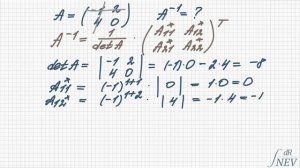 A = (-1 2 4 0) A⁻¹ = ?
A⁻¹ = 1/detA · (A*₁₁ A*₁₂ A*₂₁ A*₂₂)ᵀ
detA = |-1 2 4 0| = (-1)·0 - 2·4 = -8
A*₁₁ = (-1)¹⁺¹ · |0| = 1·0 = 0
A*₁₂ = (-1)¹⁺² · |4| = -1·4 = -
∫ dR NEV